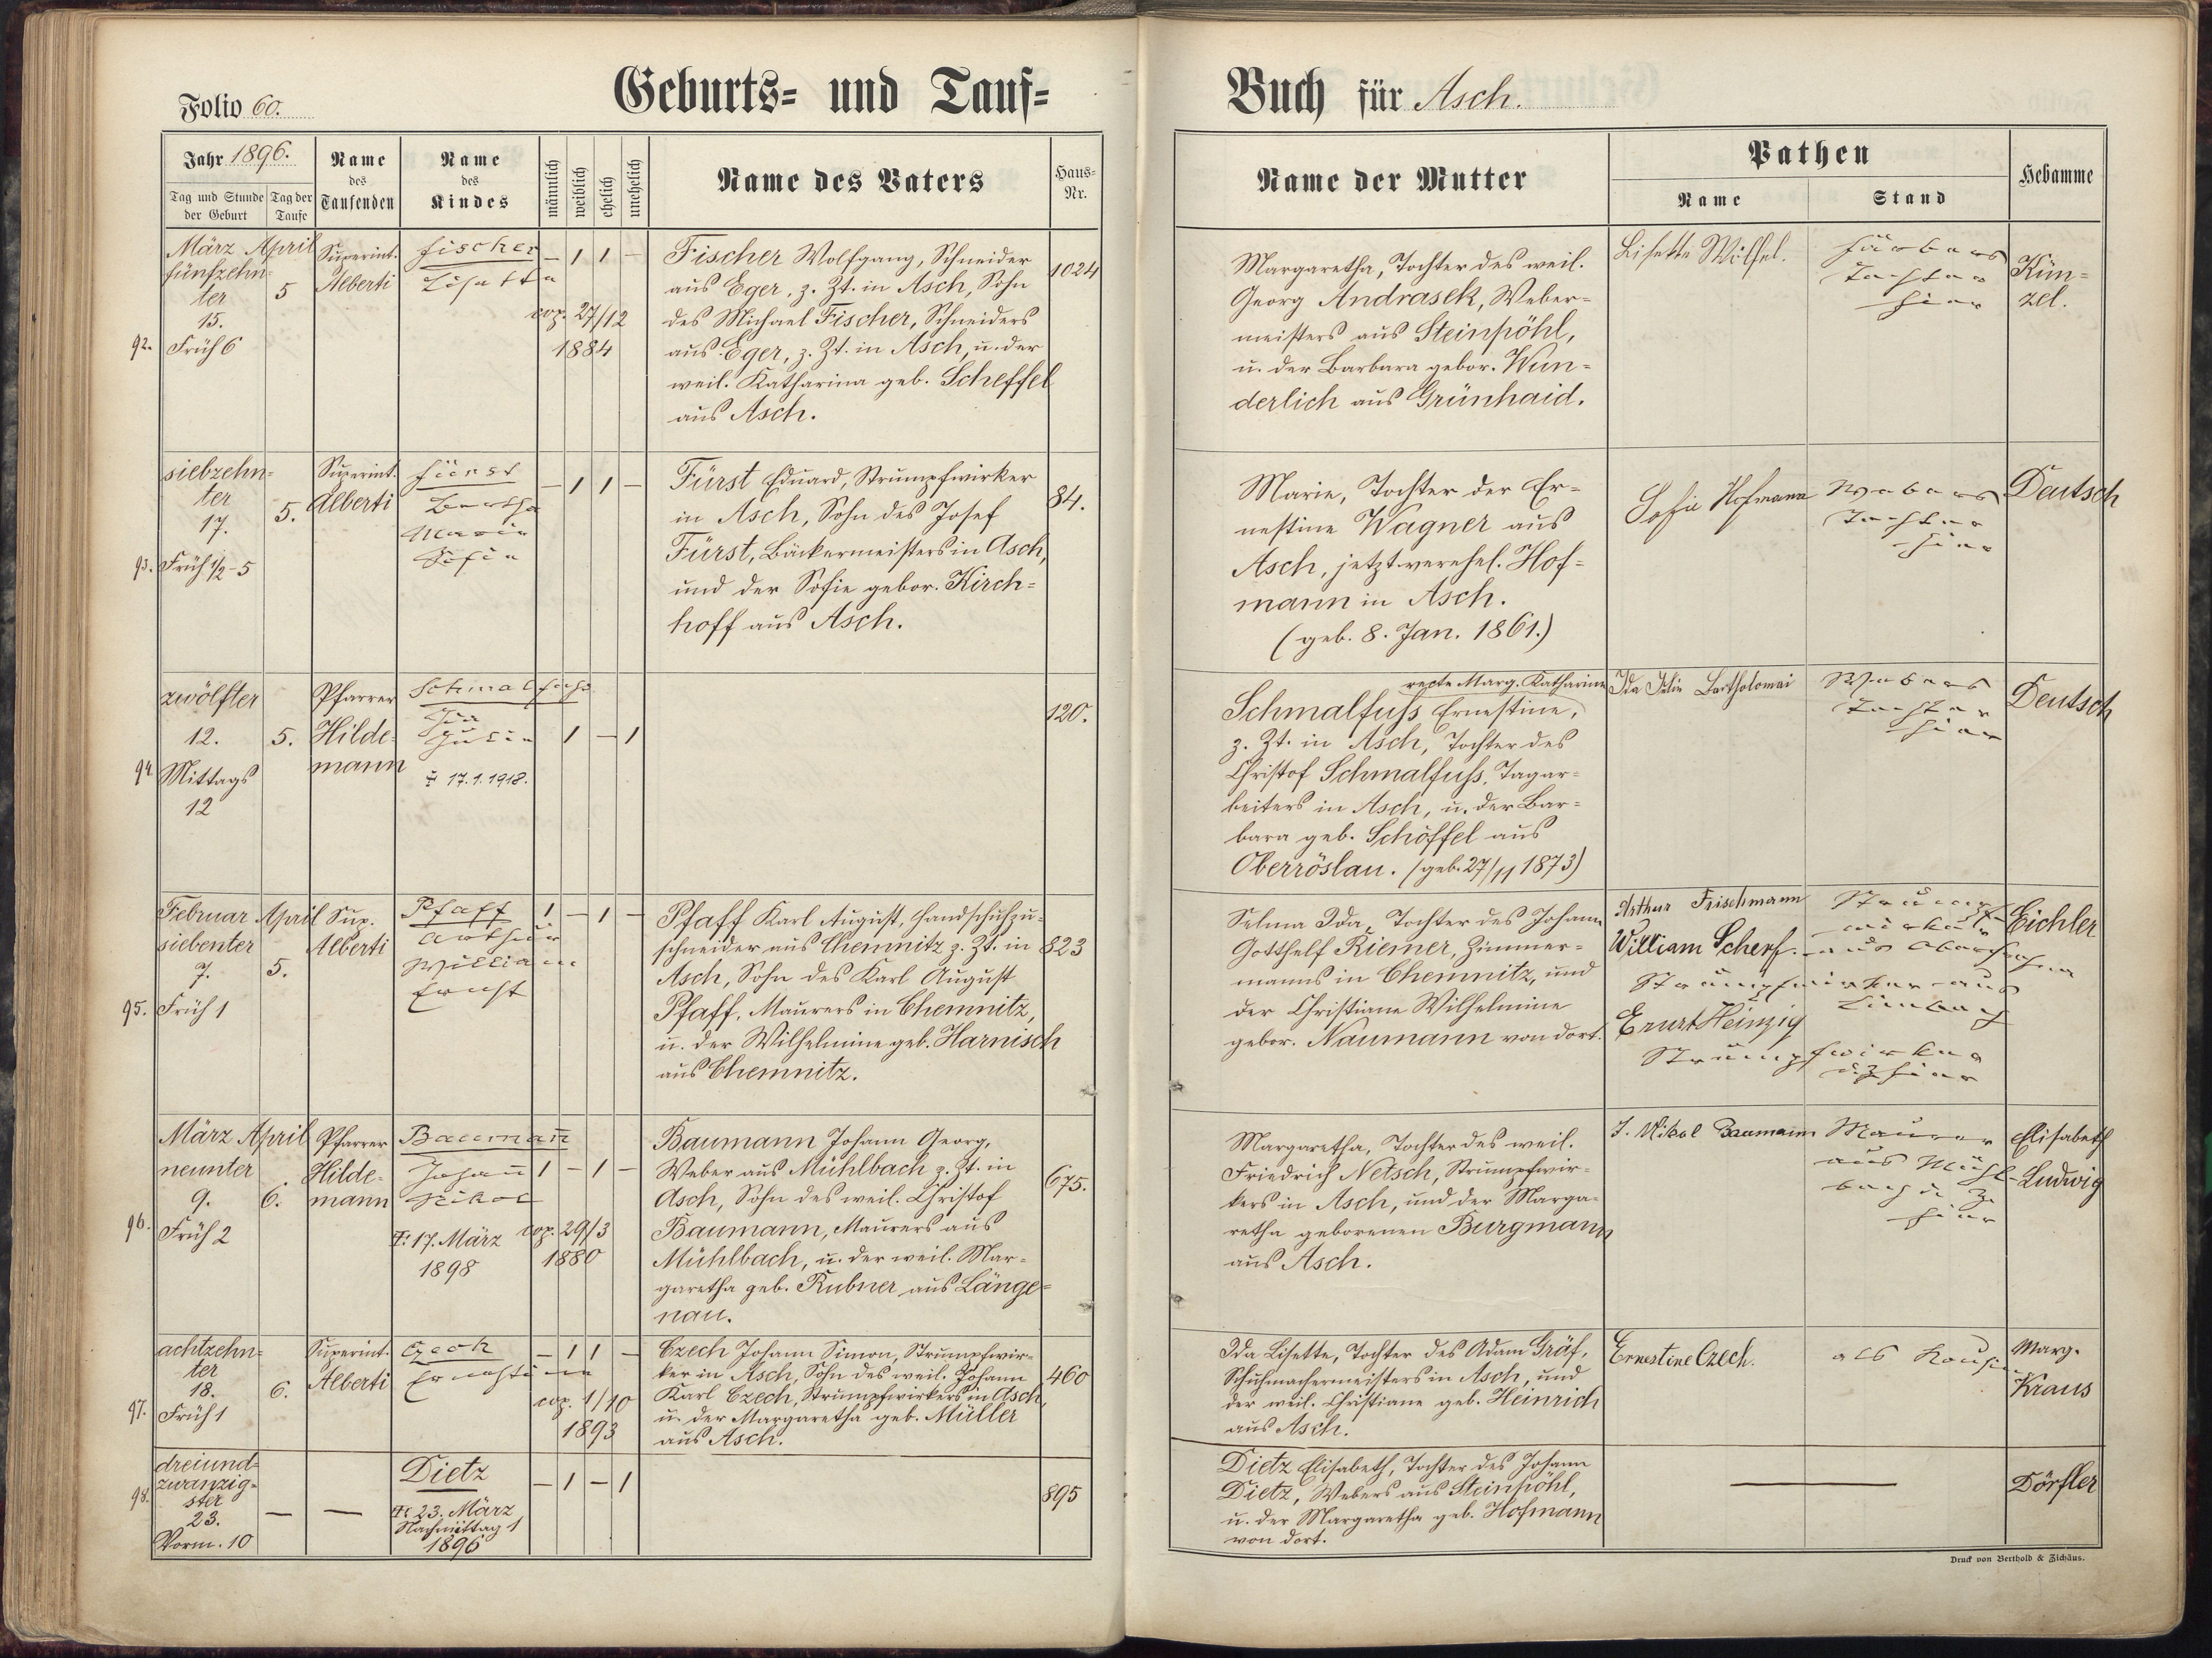 Folio 60.
Geburts- und Tauf-
Buch für Asch.
Jahr 1896.
Tag und Stunde der Geburt
Tag der Taufe
Name des Taufenden
Name des Kindes
männlich
weiblich
ehelich
unehelich
Name des Vaters
Haus-Nr.
Name der Mutter
Pathen
Name
Stand
Hebamme
92.
März April
fünfzehn-
ter
15.
Früh 6
5
Superint.
Alberti
Fischer
Lisette
— 1 1 —
cop. 27/12
1884
Fischer Wolfgang, Schneider
aus Eger, z. Zt. in Asch, Sohn
des Michael Fischer, Schneiders
aus Eger, z. Zt. in Asch, u. der
weil. Katharina geb. Scheffel
aus Asch.
1024
Margaretha, Tochter des weil.
Georg Andrasek, Weber-
meisters aus Steinpöhl,
u. der Barbara gebor. Wun-
derlich aus Grünhaid.
Lisette Wilfel.
Färbers
Tochter
hier
Kün-
zel.
93.
siebzehn-
ter
17.
Früh 1/2-5
5.
Superint.
Alberti
Fürst
Bertha
Marie
Sofie
— 1 1 —
Fürst Eduard, Strumpfwirker
in Asch, Sohn des Josef
Fürst, Bäckermeisters in Asch,
und der Sofie gebor. Kirch-
hoff aus Asch.
84.
Marie, Tochter der Er-
nestine Wagner aus
Asch, jetzt verehel. Hof-
mann in Asch.
(geb. 8. Jan. 1861.)
Sofie Hofmann
Webers
Tochter
hier
Deutsch
94
zwölfter
12.
Mittags
12
5.
Pfarrer
Hilde-
mann
Schmalfuß
Ida
Julie
17.1.1918.
1 — 1
120.
recte Marg. Katharine
Schmalfuss Ernestine,
z. Zt. in Asch, Tochter des
Christof Schmalfuss, Tagar-
beiters in Asch, u. der Bar-
bara geb. Schöffel aus
Oberröslau. (geb. 27/11 1873)
Ida Julie Bartholomai
Webers
Tochter
hier
Deutsch
95.
Februar April
siebenter
7.
Früh 1
5.
Sup.
Alberti
Pfaff
Arthur
William
Ernst
1 — 1 —
Pfaff Karl August, Handschuhzu-
schneider aus Chemnitz z. Zt. in
Asch, Sohn des Karl August
Pfaff, Maurers in Chemnitz,
u. der Wilhelmine geb. Harnisch
aus Chemnitz.
823
Selma Ida, Tochter des Johann
Gotthelf Riemer, Zimmer-
manns in Chemnitz, und
der Christiane Wilhelmine
gebor. Naumann von dort.
Arthur Frischmann
Strumpf-
wirker
William Scherf.
Strumpfwirker aus
Limbach
Ernst Heinzig
Strumpfwirker
hier
Eichler
96.
März April
neunter
9.
Früh 2
6.
Pfarrer
Hilde-
mann
Baumann
Johann
Nikol
17. März
1898
1 — 1 —
cop. 29/3
1880
Baumann Johann Georg,
Weber aus Mühlbach z. Zt. in
Asch, Sohn des weil. Christof
Baumann, Maurers aus
Mühlbach, u. der weil. Mar-
garetha geb. Rubner aus Länge-
nau.
675.
Margaretha, Tochter des weil.
Friedrich Netsch, Strumpfwir-
kers in Asch, und der Marga-
retha geborenen Burgmann
aus Asch.
J. Nikol Baumann
Maurer
aus Mühl-
bach
hier
Elisabeth
Ludwig
97.
achtzehn-
ter
18.
Früh 1
6.
Superint.
Alberti
Czech
Ernestine
— 1 1 —
cop. 1/10
1893
Czech Johann Simon, Strumpfwir-
ker in Asch, Sohn des weil. Johann
Karl Czech, Strumpfwirkers in Asch,
u. der Margaretha geb. Müller
aus Asch.
460
Ida Lisette, Tochter des Adam Gräf,
Schuhmachermeisters in Asch, und
der weil. Christiane geb. Heinrich
aus Asch.
Ernestine Czech.
Marg.
Kraus
98.
dreiund-
zwanzig-
ster
23.
Vorm. 10
— —
Dietz
23. März
Nachmittag 1
1896
— 1 — 1
895
Dietz Elisabeth, Tochter des Johann
Dietz, Webers aus Steinpöhl,
u. der Margaretha geb. Hofmann
von dort.
Dörfler
Druck von Berthold & Zichäus.